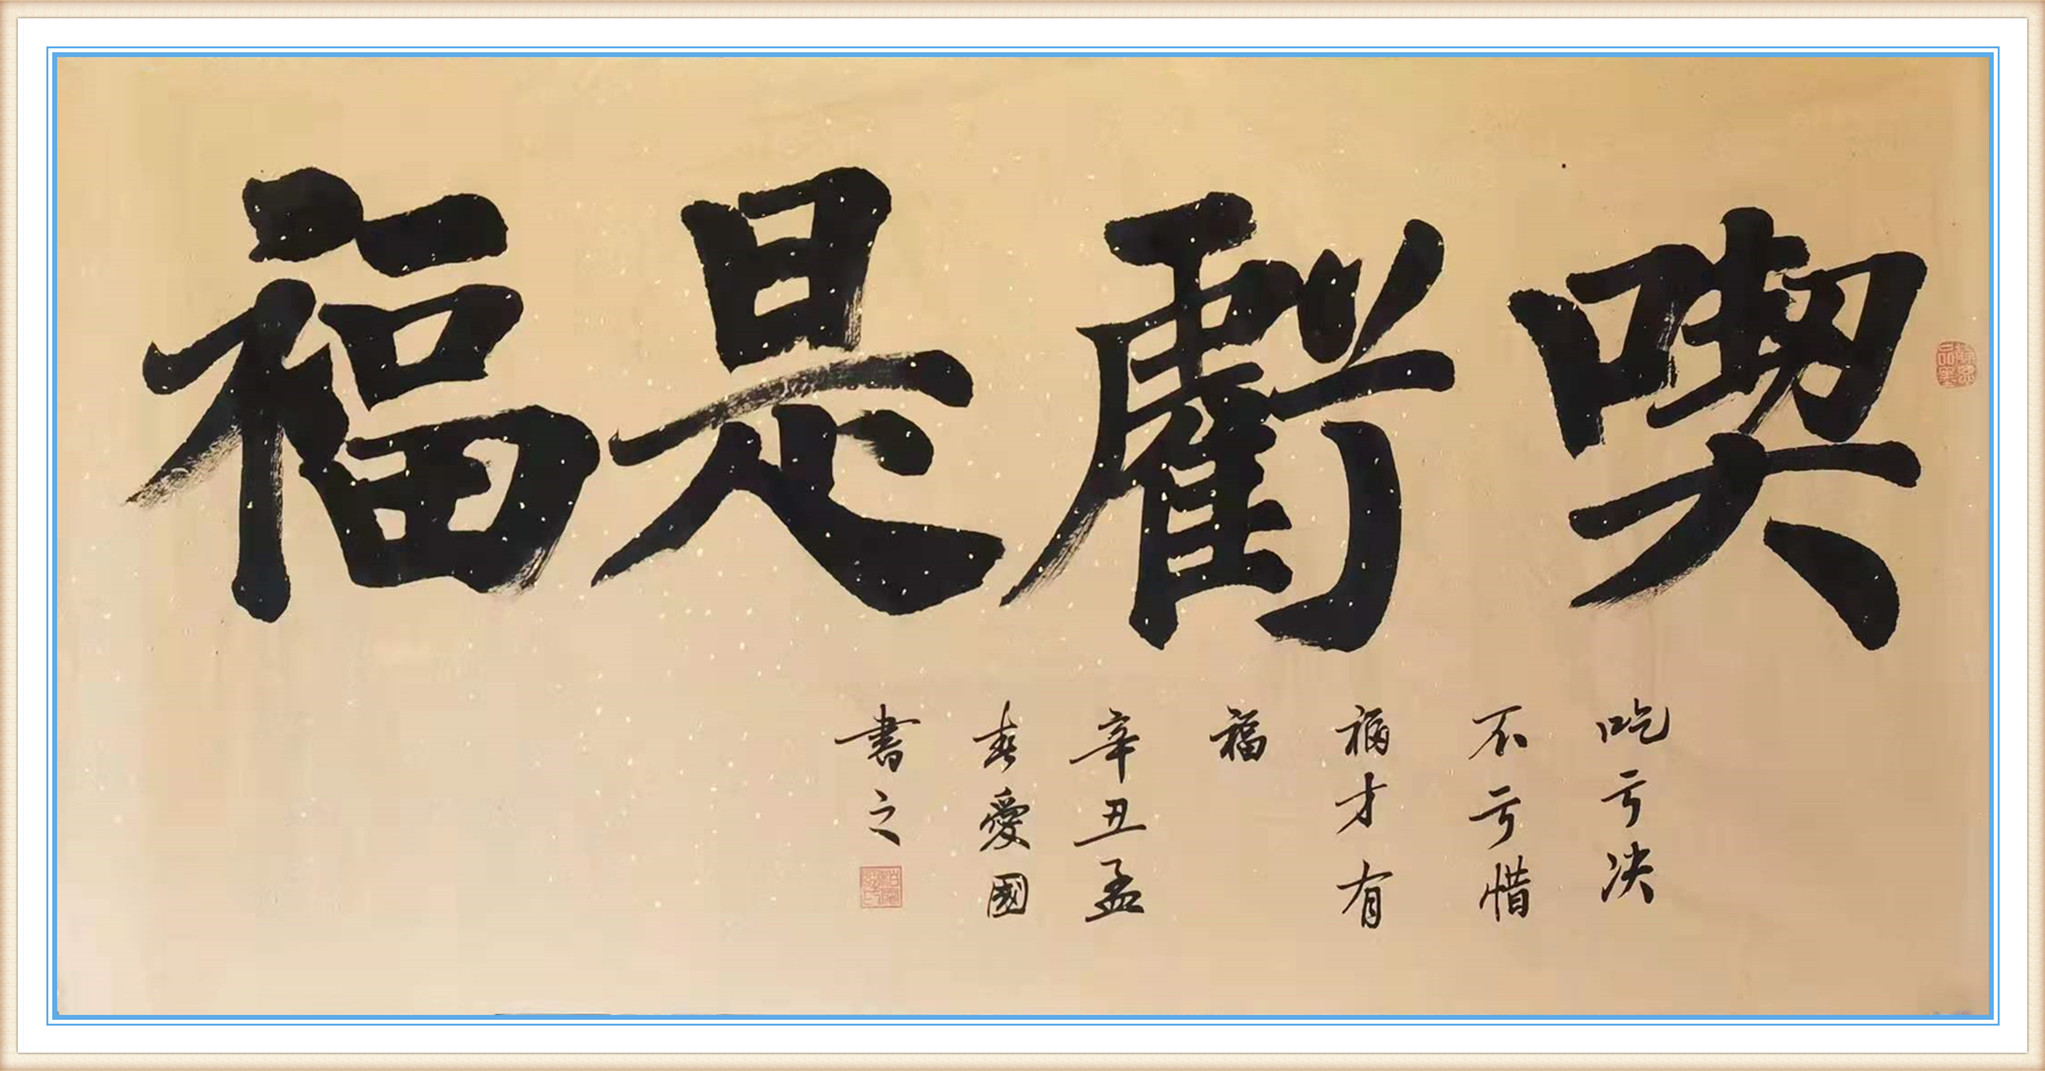 喫虧是福
吃亏决
不亏惜
福才有
福
辛丑孟
春愛國
書之